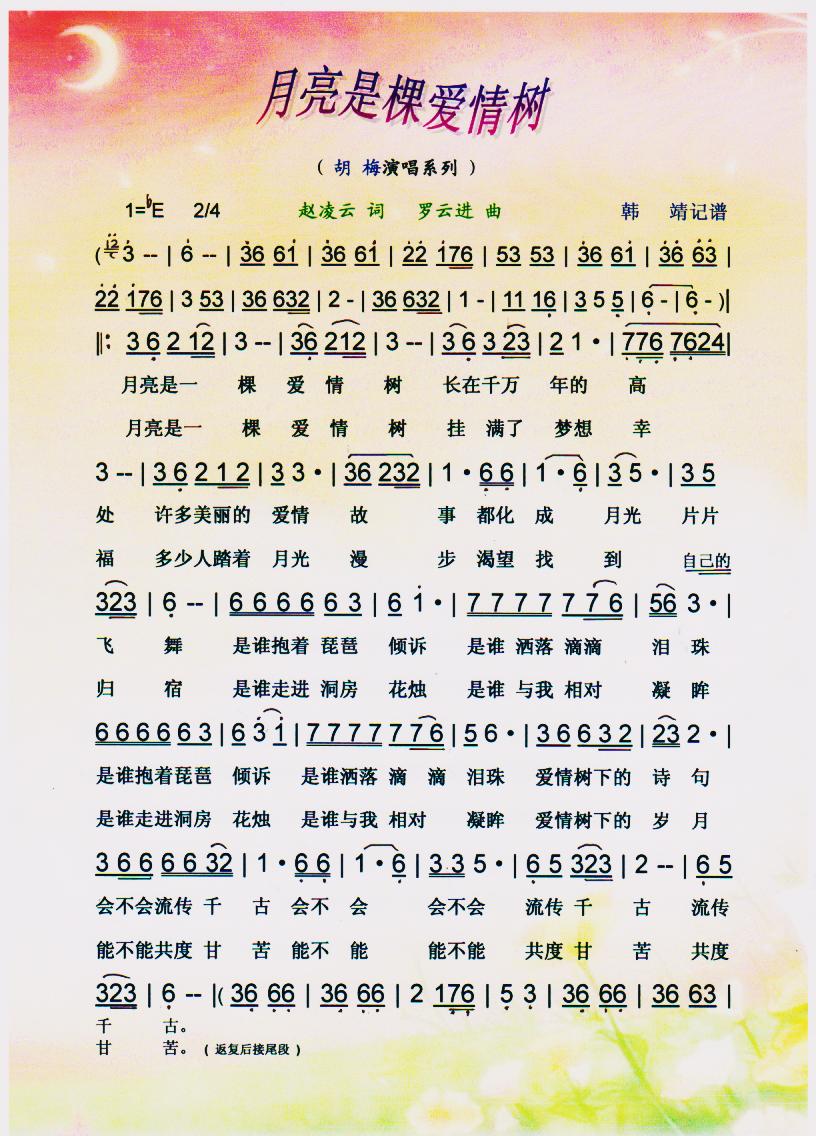 月亮是棵爱情树
( 胡 梅演唱系列 )
1=♭E 2/4 赵凌云 词 罗云进 曲 韩 靖记谱
( 12 3 -- | 6 -- | 36 61 | 36 61 | 22 176 | 53 53 | 36 61 | 36 63 |
22 176 | 3 53 | 36 632 | 2 - | 36 632 | 1 - | 11 16 | 3 5 5 | 6 - | 6 - )|
‖: 3 6 2 12 | 3 -- | 36 212 | 3 -- | 3 6 3 23 | 2 1 • | 776 7624 |
月亮是一 棵 爱 情 树 长在千万 年的 高
月亮是一 棵 爱 情 树 挂 满了 梦想 幸
3 -- | 3 6 2 1 2 | 3 3 • | 36 232 | 1 • 6 6 | 1 • 6 | 3 5 • | 3 5
处 许多美丽的 爱情 故 事 都化 成 月光 片片
福 多少人踏着 月光 漫 步 渴望 找 到 自己的
323 | 6 -- | 6 6 6 6 6 3 | 6 1 • | 7 7 7 7 7 7 6 | 56 3 • |
飞 舞 是谁抱着 琵琶 倾诉 是谁 洒落 滴滴 泪 珠
归 宿 是谁走进 洞房 花烛 是谁 与我 相对 凝 眸
6 6 6 6 6 3 | 6 3 1 | 7 7 7 7 7 7 6 | 5 6 • | 3 6 6 3 2 | 23 2 • |
是谁抱着琵琶 倾诉 是谁洒落 滴 滴 泪珠 爱情树下的 诗 句
是谁走进洞房 花烛 是谁与我 相对 凝眸 爱情树下的 岁 月
3 6 6 6 6 32 | 1 • 6 6 | 1 • 6 | 3 3 5 • | 6 5 323 | 2 -- | 6 5
会不会流传 千 古 会不 会 会不会 流传 千 古 流传
能不能共度 甘 苦 能不 能 能不能 共度 甘 苦 共度
323 | 6 -- |( 36 66 | 36 66 | 2 176 | 5 3 | 36 66 | 36 63 |
千 古。
甘 苦。( 返复后接尾段 )